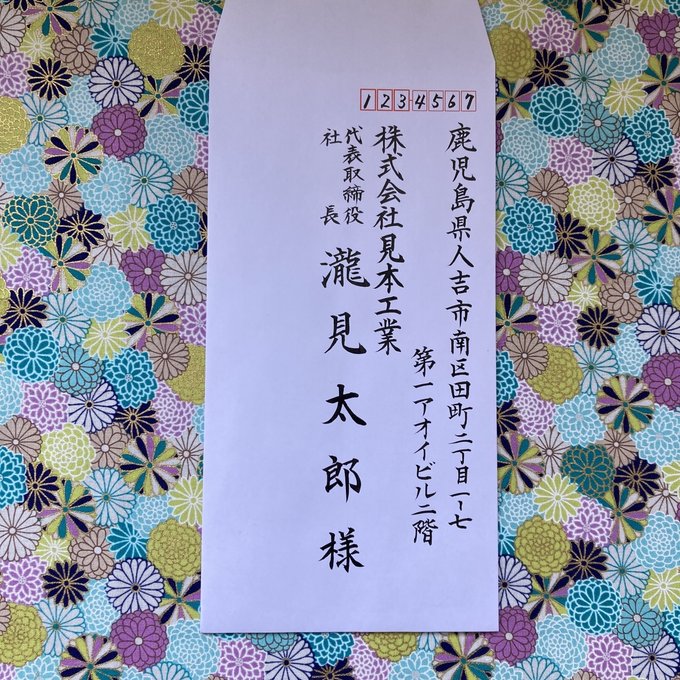 1234567
鹿児島県人吉市南区田町二丁目一ー七
第一アオイビル二階
株式会社見本工業
代表取締役
社長
瀧見太郎様